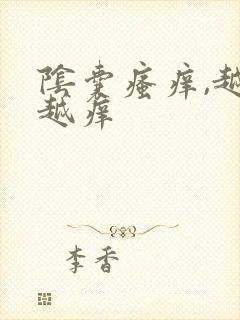 陰囊瘙痒,越
越痒
李香